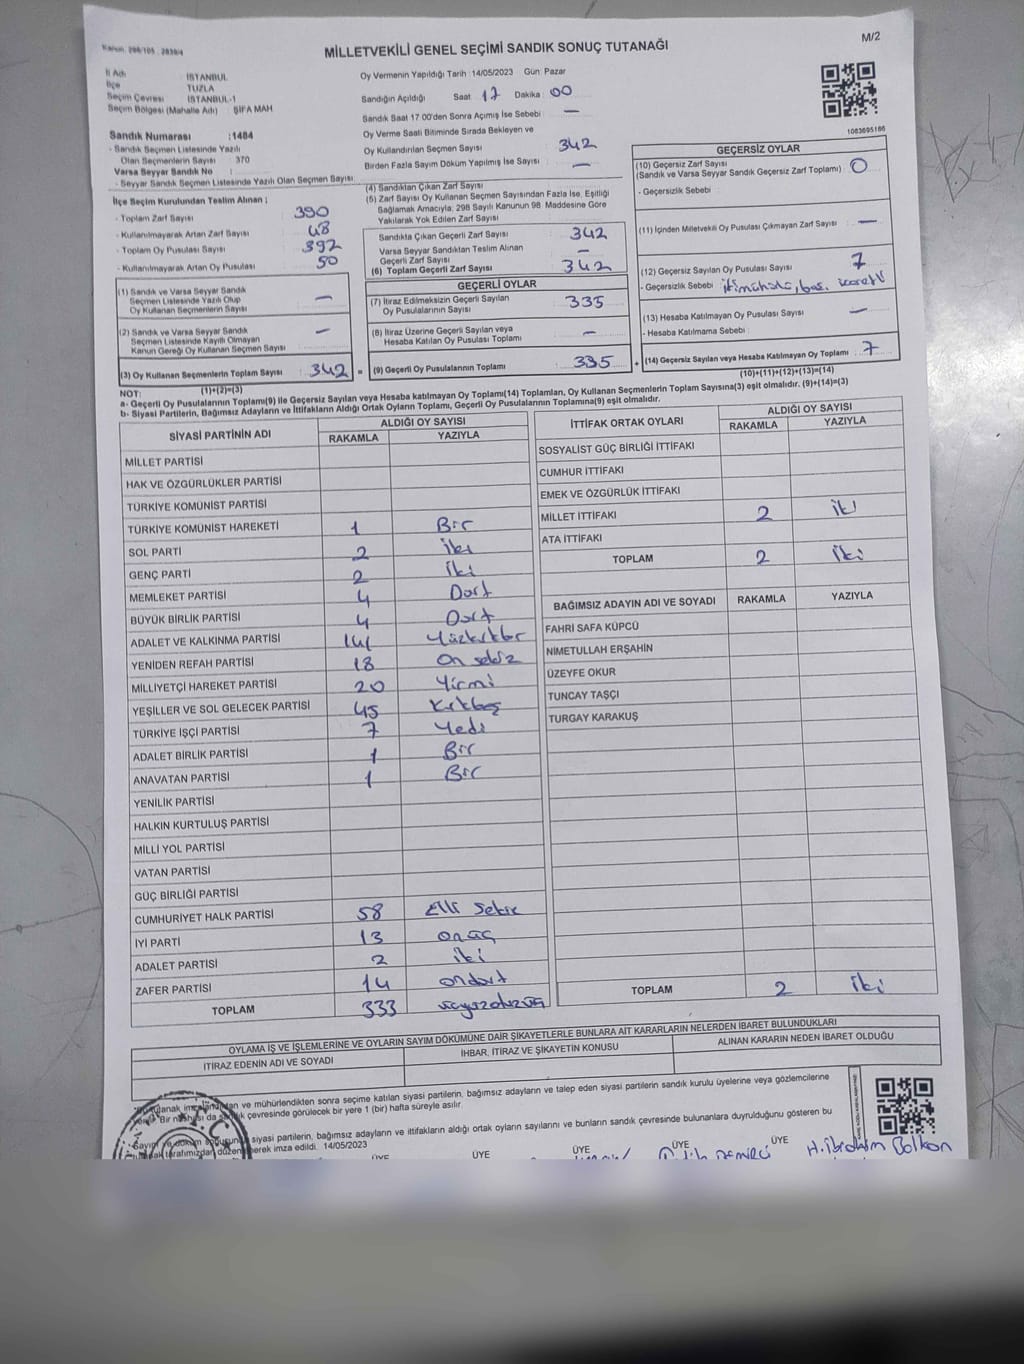 Kanun: 298/105 - 2839/4
MİLLETVEKİLİ GENEL SEÇİMİ SANDIK SONUÇ TUTANAĞI
M/2
İl Adı : İSTANBUL
İlçe : TUZLA
Seçim Çevresi : İSTANBUL-1
Seçim Bölgesi (Mahalle Adı) : ŞİFA MAH
Sandık Numarası : 1484
- Sandık Seçmen Listesinde Yazılı
Olan Seçmenlerin Sayısı : 370
Varsa Seyyar Sandık No :
- Seyyar Sandık Seçmen Listesinde Yazılı Olan Seçmen Sayısı:
İlçe Seçim Kurulundan Teslim Alınan ;
- Toplam Zarf Sayısı : 390
- Kullanılmayarak Artan Zarf Sayısı : 48
- Toplam Oy Pusulası Sayısı : 392
- Kullanılmayarak Artan Oy Pusulası : 50
(1) Sandık ve Varsa Seyyar Sandık
Seçmen Listesinde Yazılı Olup
Oy Kullanan Seçmenlerin Sayısı : —
(2) Sandık ve Varsa Seyyar Sandık
Seçmen Listesinde Kayıtlı Olmayan
Kanun Gereği Oy Kullanan Seçmen Sayısı : —
(3) Oy Kullanan Seçmenlerin Toplam Sayısı : 342
(1)+(2)=(3)
Oy Vermenin Yapıldığı Tarih : 14/05/2023 Gün: Pazar
Sandığın Açıldığı Saat : 17 Dakika : 00
Sandık Saat 17.00'den Sonra Açılmış İse Sebebi : —
Oy Verme Saati Bitiminde Sırada Bekleyen ve
Oy Kullandırılan Seçmen Sayısı : 342
Birden Fazla Sayım Döküm Yapılmış İse Sayısı : —
(4) Sandıktan Çıkan Zarf Sayısı
(5) Zarf Sayısı Oy Kullanan Seçmen Sayısından Fazla İse, Eşitliği
Sağlamak Amacıyla; 298 Sayılı Kanunun 98. Maddesine Göre
Yakılarak Yok Edilen Zarf Sayısı
Sandıkta Çıkan Geçerli Zarf Sayısı : 342
Varsa Seyyar Sandıktan Teslim Alınan
Geçerli Zarf Sayısı : —
(6) Toplam Geçerli Zarf Sayısı : 342
GEÇERLİ OYLAR
(7) İtiraz Edilmeksizin Geçerli Sayılan
Oy Pusulalarının Sayısı : 335
(8) İtiraz Üzerine Geçerli Sayılan veya
Hesaba Katılan Oy Pusulası Toplamı : —
(9) Geçerli Oy Pusulalarının Toplamı : 335
1083695186
GEÇERSİZ OYLAR
(10) Geçersiz Zarf Sayısı
(Sandık ve Varsa Seyyar Sandık Geçersiz Zarf Toplamı) : 0
- Geçersizlik Sebebi :
(11) İçinden Milletvekili Oy Pusulası Çıkmayan Zarf Sayısı : —
(12) Geçersiz Sayılan Oy Pusulası Sayısı : 7
- Geçersizlik Sebebi :
(13) Hesaba Katılmayan Oy Pusulası Sayısı : —
- Hesaba Katılmama Sebebi :
(14) Geçersiz Sayılan veya Hesaba Katılmayan Oy Toplamı : 7
(10)+(11)+(12)+(13)=(14)
NOT:
a- Geçerli Oy Pusulalarının Toplamı(9) ile Geçersiz Sayılan veya Hesaba katılmayan Oy Toplamı(14) Toplamları, Oy Kullanan Seçmenlerin Toplam Sayısına(3) eşit olmalıdır. (9)+(14)=(3)
b- Siyasi Partilerin, Bağımsız Adayların ve İttifakların Aldığı Ortak Oyların Toplamı, Geçerli Oy Pusulalarının Toplamına(9) eşit olmalıdır.
SİYASİ PARTİNİN ADI ALDIĞI OY SAYISI
RAKAMLA YAZIYLA
MİLLET PARTİSİ
HAK VE ÖZGÜRLÜKLER PARTİSİ
TÜRKİYE KOMÜNİST PARTİSİ
TÜRKİYE KOMÜNİST HAREKETİ 1 Bir
SOL PARTİ 2 iki
GENÇ PARTİ 2 iki
MEMLEKET PARTİSİ 4 Dört
BÜYÜK BİRLİK PARTİSİ 4 Dört
ADALET VE KALKINMA PARTİSİ 141 Yüzkırkbir
YENİDEN REFAH PARTİSİ 18 On sekiz
MİLLİYETÇİ HAREKET PARTİSİ 20 Yirmi
YEŞİLLER VE SOL GELECEK PARTİSİ 45 Kırkbeş
TÜRKİYE İŞÇİ PARTİSİ 7 Yedi
ADALET BİRLİK PARTİSİ 1 Bir
ANAVATAN PARTİSİ 1 Bir
YENİLİK PARTİSİ
HALKIN KURTULUŞ PARTİSİ
MİLLİ YOL PARTİSİ
VATAN PARTİSİ
GÜÇ BİRLİĞİ PARTİSİ
CUMHURİYET HALK PARTİSİ 58 Elli Sekiz
İYİ PARTİ 13 onüç
ADALET PARTİSİ 2 iki
ZAFER PARTİSİ 14 ondört
TOPLAM 333 üçyüzotuzüç
İTTİFAK ORTAK OYLARI ALDIĞI OY SAYISI
RAKAMLA YAZIYLA
SOSYALİST GÜÇ BİRLİĞİ İTTİFAKI
CUMHUR İTTİFAKI
EMEK VE ÖZGÜRLÜK İTTİFAKI
MİLLET İTTİFAKI 2 iki
ATA İTTİFAKI
TOPLAM 2 iki
BAĞIMSIZ ADAYIN ADI VE SOYADI RAKAMLA YAZIYLA
FAHRİ SAFA KÜPCÜ
NİMETULLAH ERŞAHİN
ÜZEYFE OKUR
TUNCAY TAŞÇI
TURGAY KARAKUŞ
TOPLAM 2 iki
OYLAMA İŞ VE İŞLEMLERİNE VE OYLARIN SAYIM DÖKÜMÜNE DAİR ŞİKAYETLERLE BUNLARA AİT KARARLARIN NELERDEN İBARET BULUNDUKLARI
İTİRAZ EDENİN ADI VE SOYADI İHBAR, İTİRAZ VE ŞİKAYETİN KONUSU ALINAN KARARIN NEDEN İBARET OLDUĞU
ve mühürlendikten sonra seçime katılan siyasi partilerin, bağımsız adayların ve talep eden siyasi partilerin sandık kurulu üyelerine veya gözlemcilerine
çevresinde görülecek bir yere 1 (bir) hafta süreyle asılır.
siyasi partilerin, bağımsız adayların ve ittifakların aldığı ortak oyların sayılarını ve bunların sandık çevresinde bulunanlara duyrulduğunu gösteren bu
tarafımızdan düzenlenerek imza edildi. 14/05/2023
ÜYE ÜYE ÜYE ÜYE ÜYE
H. İbrahim